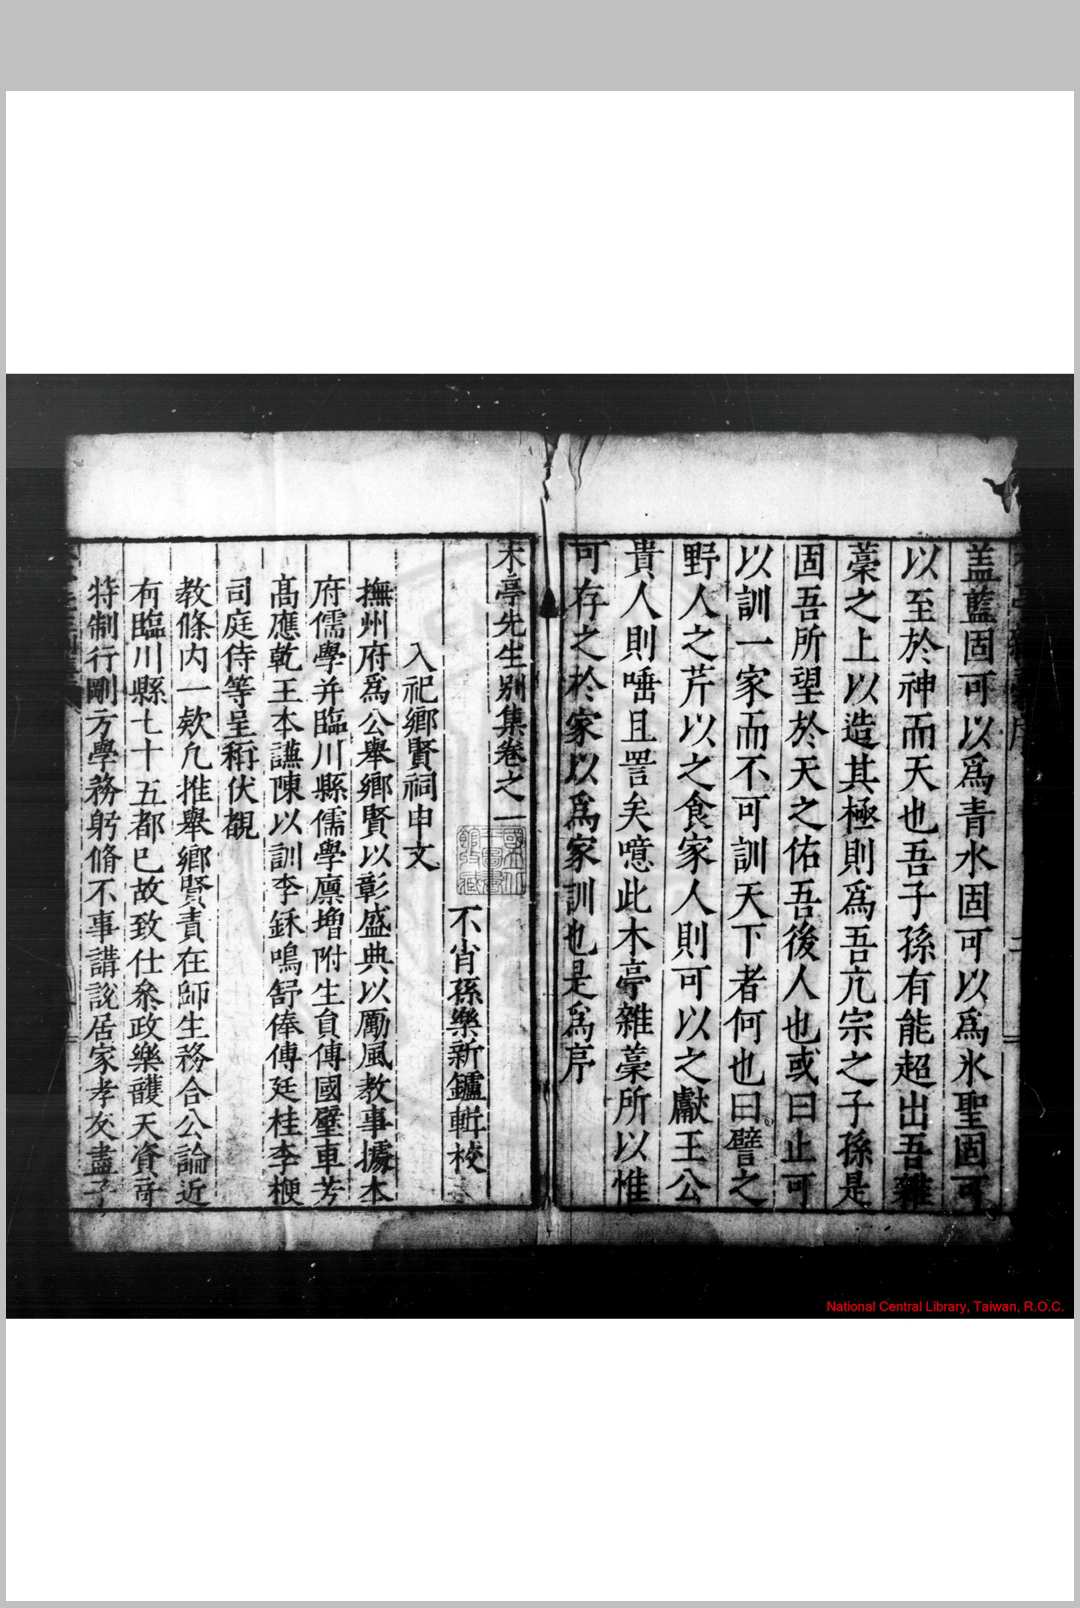 盖藍固可以爲青水固可以爲氷聖固可
以至於神而天也吾子孫有能超出吾雜
藁之上以造其極則爲吾亢宗之子孫是
固吾所望於天之佑吾後人也或曰止可
以訓一家而不可訓天下者何也曰譬之
野人之芹以之食家人則可以之獻王公
貴人則唾且詈矣噫此木亭雜藁所以惟
可存之於家以爲家訓也是爲序
木亭先生别集卷之一
不肖孫樂新鑪輯校
入祀鄉賢祠申文
撫州府爲公舉鄉賢以彰盛典以勵風教事據本
府儒學并臨川縣儒學廪增附生員傅國璧車芳
高應乾王本讌陳以訓李鉌鳴舒俸傅廷桂李梗
司庭侍等呈稱伏覩
教條内一欵凡推舉鄉賢責在師生務合公論近
有臨川縣七十五都已故致仕叅政樂頀天資奇
特制行剛方學務躬脩不事講説居家孝友盡子
National Central Library, Taiwan, R.O.C.